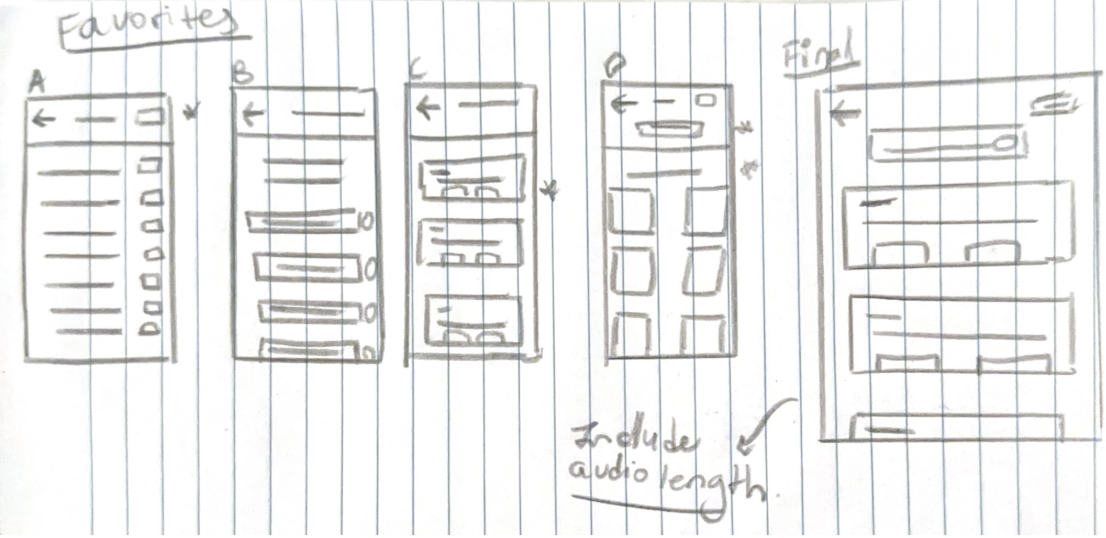 Favorites
A
B
C
D
Final
Include
audio length.